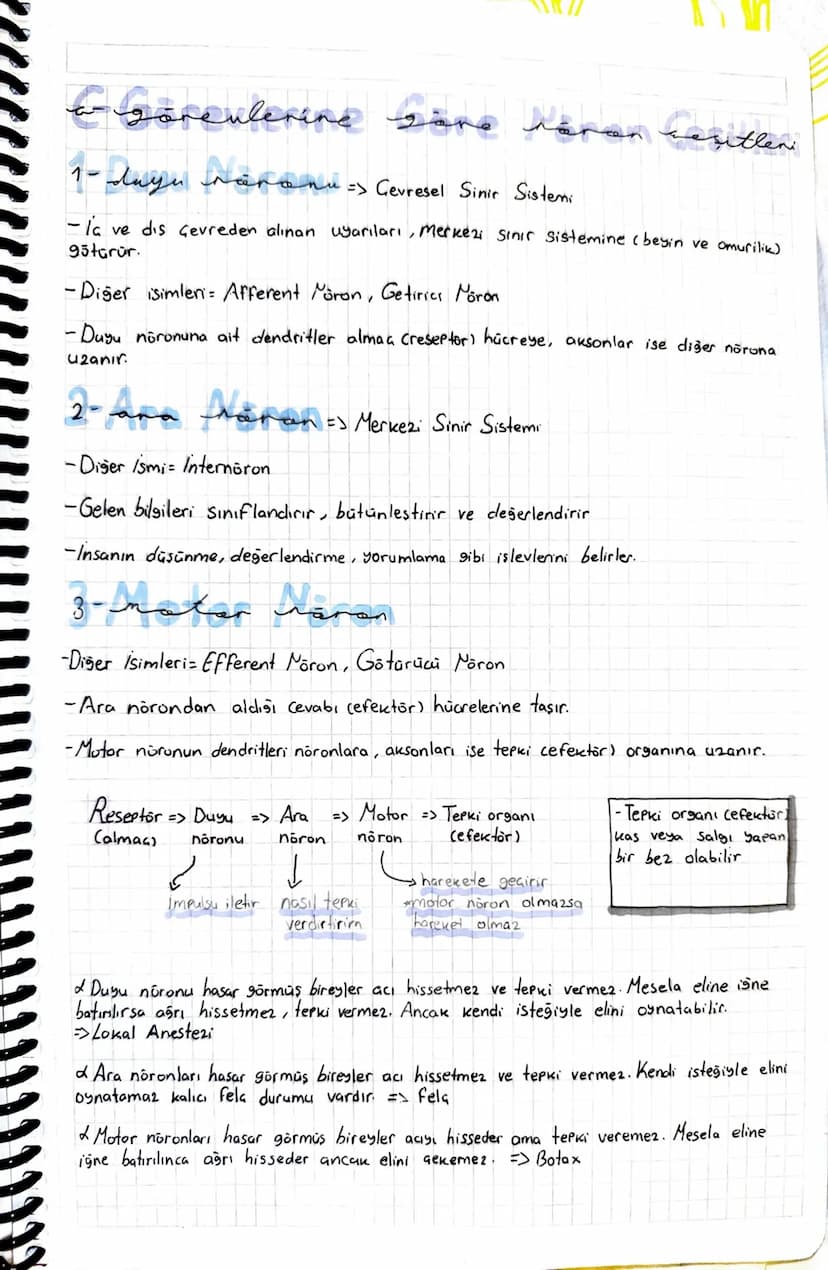 C-Görevlerine Göre Nöron Çeşitleri
1-Duyu Nöronu => Çevresel Sinir Sistemi
-İç ve dış çevreden alınan uyarıları, merkezi sinir sistemine (beyin ve omurilik)
götürür.
-Diğer isimleri= Afferent Nöron, Getirici Nöron
-Duyu nöronuna ait dendritler almaç (reseptör) hücreye, aksonlar ise diğer nörona
uzanır.
2-Ara Nöron => Merkezi Sinir Sistemi
-Diğer İsmi= İnternöron
-Gelen bilgileri sınıflandırır, bütünleştirir ve değerlendirir
-İnsanın düşünme, değerlendirme, yorumlama gibi işlevlerini belirler.
3-Motor Nöron
-Diğer İsimleri= Efferent Nöron, Götürücü Nöron
-Ara nörondan aldığı cevabı (efektör) hücrelerine taşır.
-Motor nöronun dendritleri nöronlara, aksonları ise tepki (efektör) organına uzanır.
Reseptör => Duyu => Ara => Motor => Tepki organı
(almaç) nöronu nöron nöron (efektör)
İmpulsu iletir nasıl tepki verdirtirim
harekete geçirir
*motor nöron olmazsa
hareket olmaz
- Tepki organı (efektör)
kas veya salgı yapan
bir bez olabilir
α Duyu nöronu hasar görmüş bireyler acı hissetmez ve tepki vermez. Mesela eline iğne
batırılırsa ağrı hissetmez, tepki vermez. Ancak kendi isteğiyle elini oynatabilir.
=> Lokal Anestezi
α Ara nöronları hasar görmüş bireyler acı hissetmez ve tepki vermez. Kendi isteğiyle elini
oynatamaz kalıcı felç durumu vardır. => Felç
α Motor nöronları hasar görmüş bireyler acıyı hisseder ama tepki veremez. Mesela eline
iğne batırılınca ağrı hisseder ancak elini çekemez. => Botox